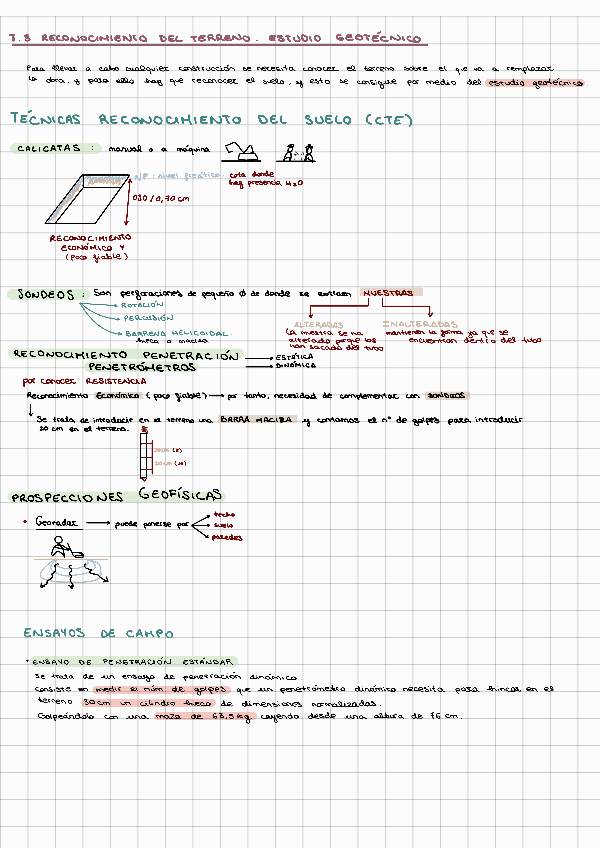 T.8 RECONOCIMIENTO DEL TERRENO. ESTUDIO GEOTÉCNICO
Para llevar a cabo cualquier construcción se necesita conocer el terreno sobre el que va a remplazar
la obra, y para ello hay que reconocer el suelo, y esto se consigue por medio del estudio geotécnico
TÉCNICAS RECONOCIMIENTO DEL SUELO (CTE)
CALICATAS : manual o a máquina
NF : nivel freático: cota donde
hay presencia H2O
0,30 / 0,70 cm
RECONOCIMIENTO
ECONÓMICO Y
(poco fiable)
SONDEOS : Son perforaciones de pequeño Ø de donde se extraen MUESTRAS
ROTACIÓN
PERCUSIÓN
BARRENA HELICOIDAL
hueca o maciza
ALTERADAS
La muestra se ha
alterado porque los
han sacado del tubo
INALTERADAS
mantienen la forma ya que se
encuentran dentro del tubo
RECONOCIMIENTO PENETRACIÓN ESTÁTICA
PENETRÓMETROS DINÁMICA
por conocer RESISTENCIA
Reconocimiento Económico (poco fiable) por tanto, necesidad de complementar con SONDEOS
Se trata de introducir en el terreno una BARRA MACIZA y contamos el nº de golpes para introducir
20 cm en el terreno.
20 cm
20 cm
PROSPECCIONES GEOFÍSICAS
• Georadar puede ponerse por
techo
suelo
paredes
ENSAYOS DE CAMPO
• ENSAYO DE PENETRACIÓN ESTÁNDAR
Se trata de un ensayo de penetración dinámico
Consiste en medir el núm de golpes que un penetrómetro dinámico necesita para hincar en el
terreno 30 cm un cilindro hueco de dimensiones normalizadas.
Golpeándolo con una maza de 63,5 kg cayendo desde una altura de 76 cm.